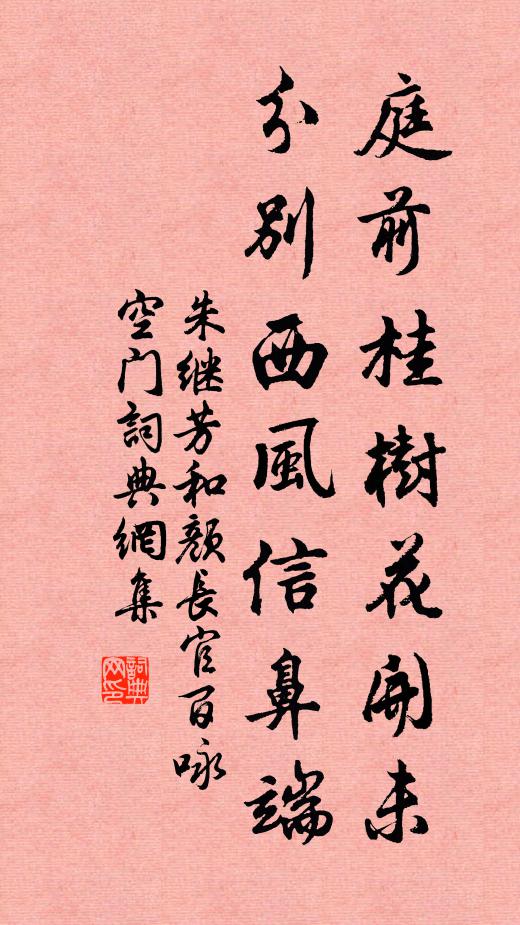 庭前桂樹花開未
分別西風信鼻端
朱继芳和顏長官百咏
空门詞典網集
詞典网印